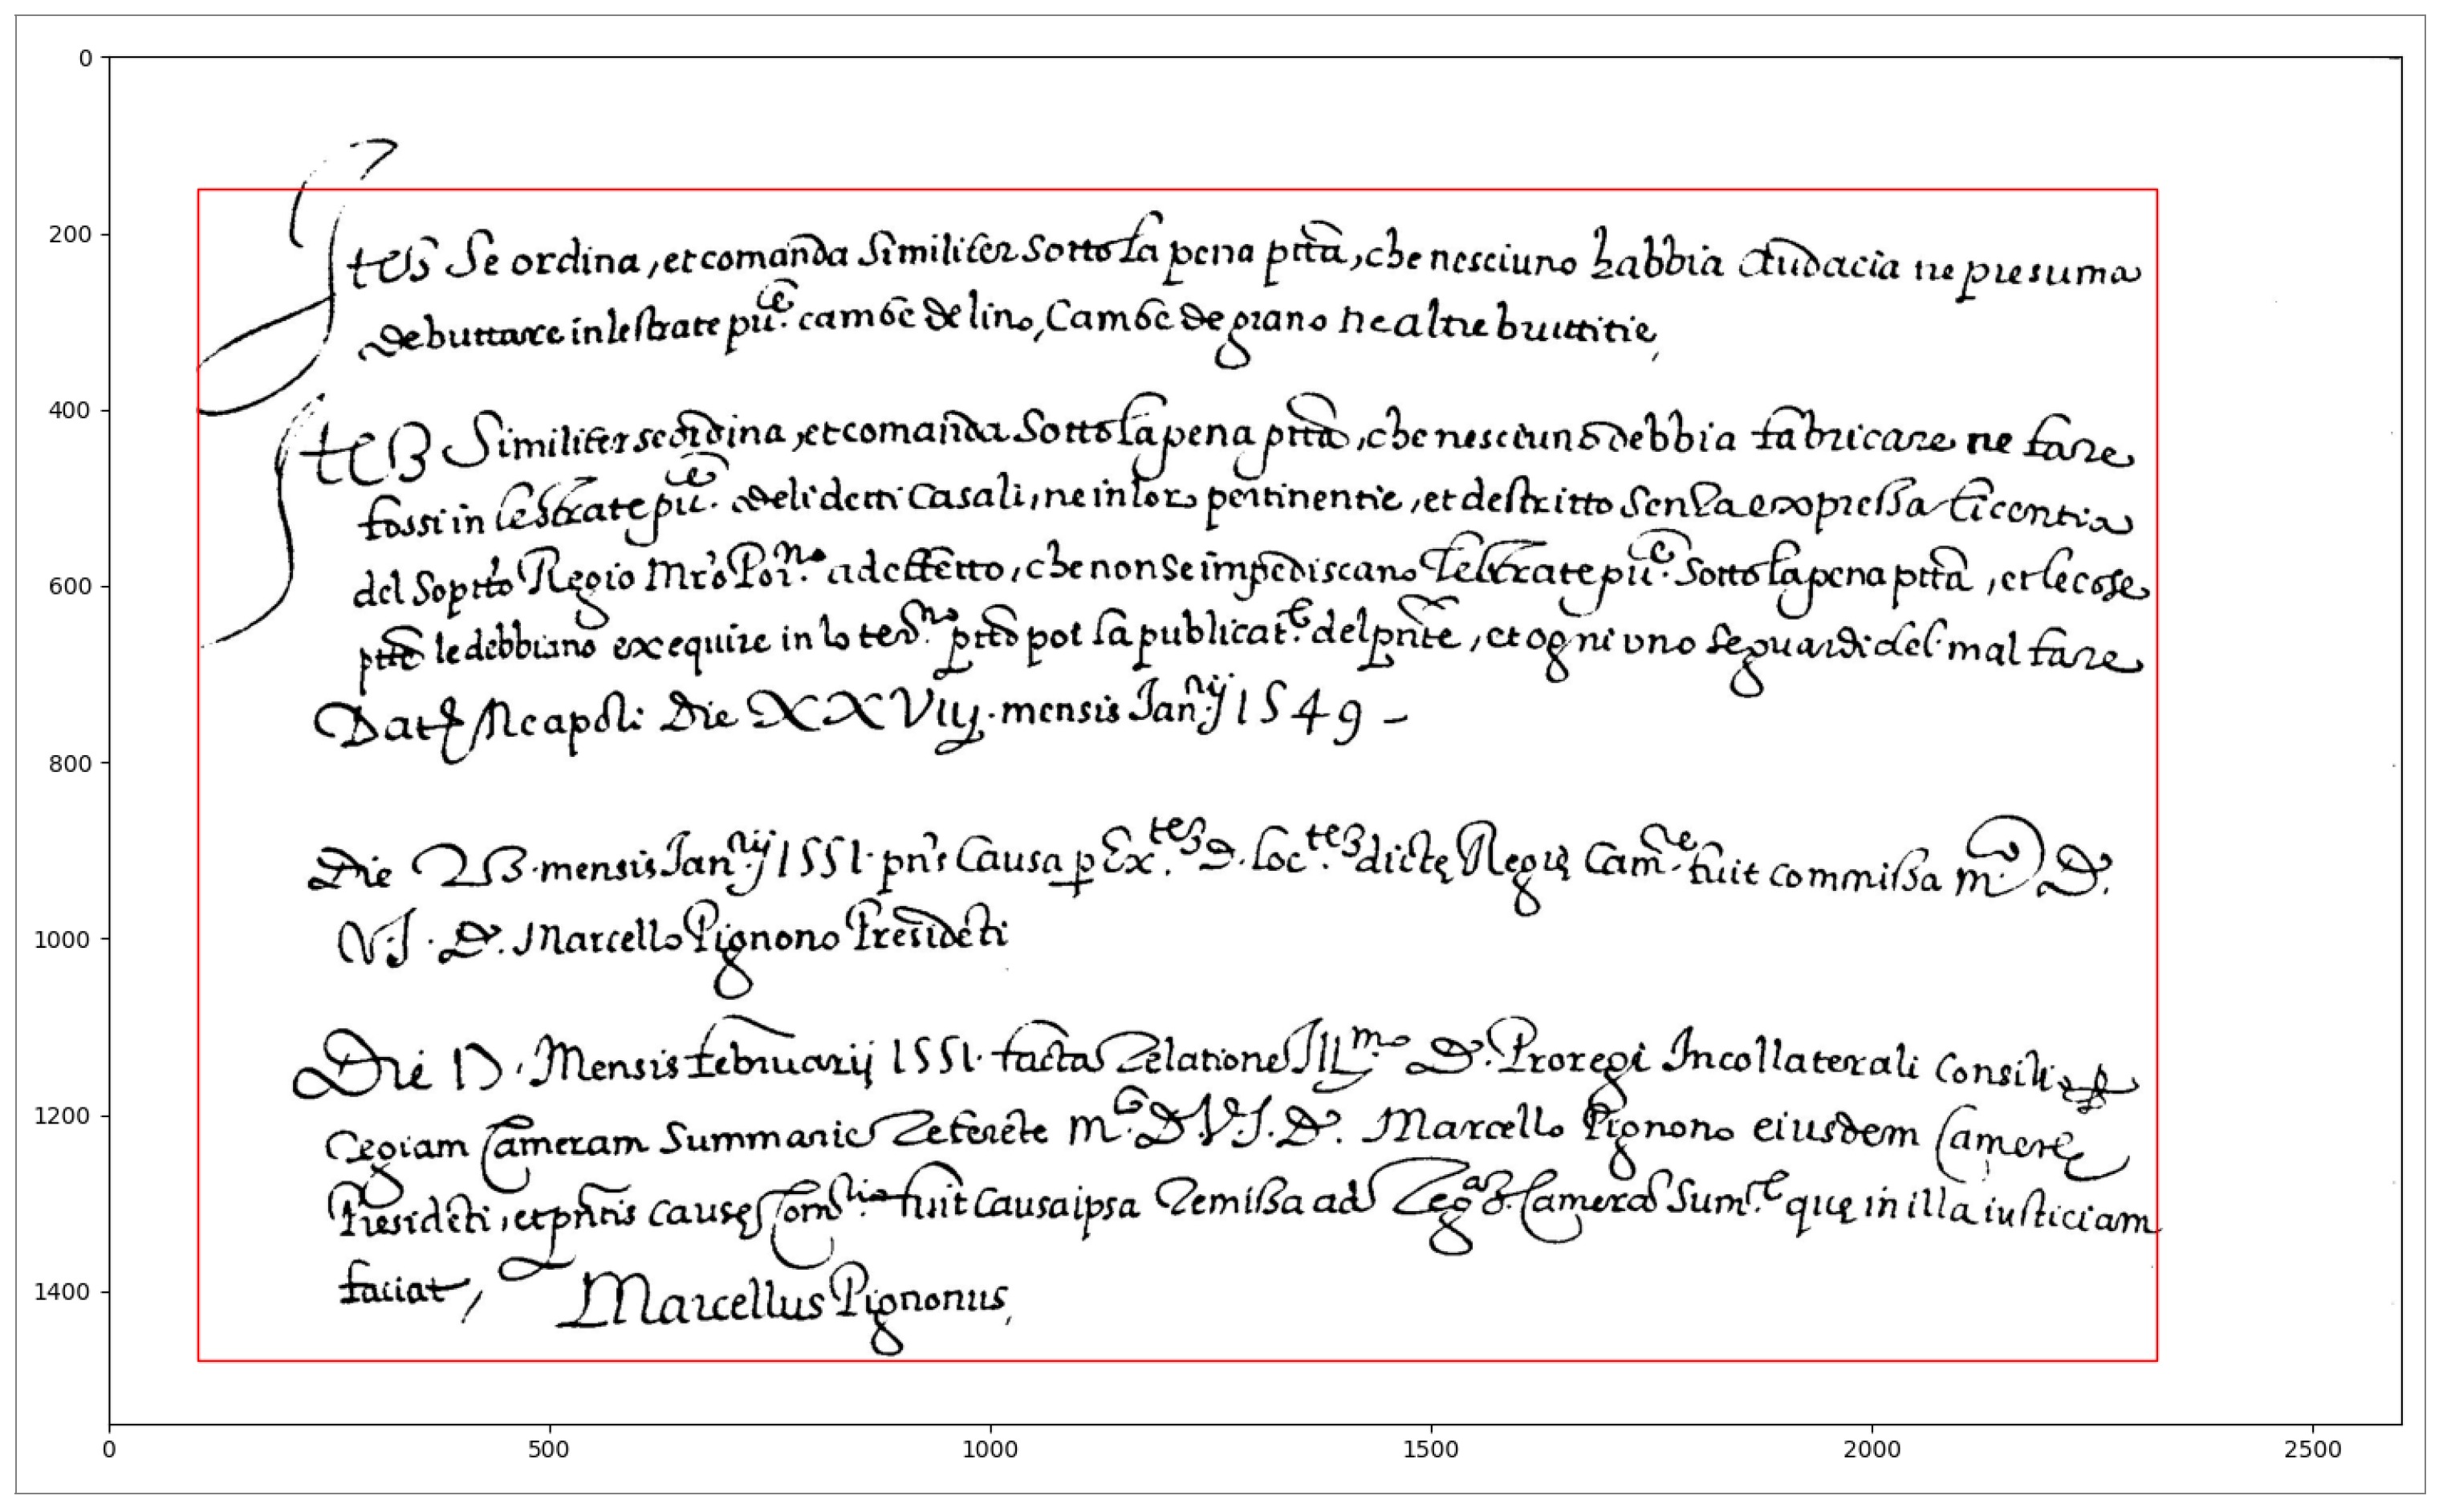 0
200
Ites Se ordina, et comanda Similiter Sotto la pena p̃tta, che nesciuno habbia audacia ne presuma
de buttare in le strate pu.ce camõc de lino, Camõc de grano ne altre bruttitie,
400
Ites Similiter se ordina, et comanda Sotto la pena p̃tta, che nesciuno debbia fabricare ne fare
fossi in le strate pu.ce de li detti Casali, ne in lor pertinentie, et destritto senza expressa licentia
600
del Sop̃tto Regio Mr̃o Por.no ad effetto, che non se impediscano le strate pu.ce Sotto la pena p̃tta, et le cose
p̃tte le debbiano exequire in lo ter.no p̃tto pot la publicat.e del p̃nte, et ogni uno se guardi del mal fare
Dat Neapoli Die XXVIIJ. mensis Jan.rij 1549 -
800
Die mensis Jan.rij 1551. p̃ns Causa p Ex.tes D. loc.tes dictę Regię Cam.re fuit commissa m.co D.
1000
V.J. D. Marcello Pignono Presidẽti
Die Mensis februarij 1551. facta relatione Ill.mo D. Proregi In collaterali Consilio
1200
regiam Cameram Summarie referẽte m.co D. V.J. D. Marcello Pignono eiusdem Camere
Presidẽti, et p̃ntis causę fuit Causa ipsa remissa ad Reg. Camerã Sum.e que in illa iusticiam
1400
faciat, Marcellus Pignonus,
0 500 1000 1500 2000 2500